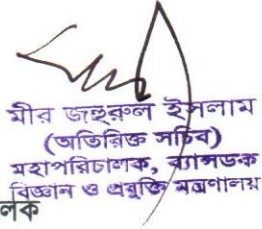 মীর জহুরুল ইসলাম
(অতিরিক্ত সচিব)
মহাপরিচালক, ব্যান্সডক
বিজ্ঞান ও প্রযুক্তি মন্ত্রণালয়
লক